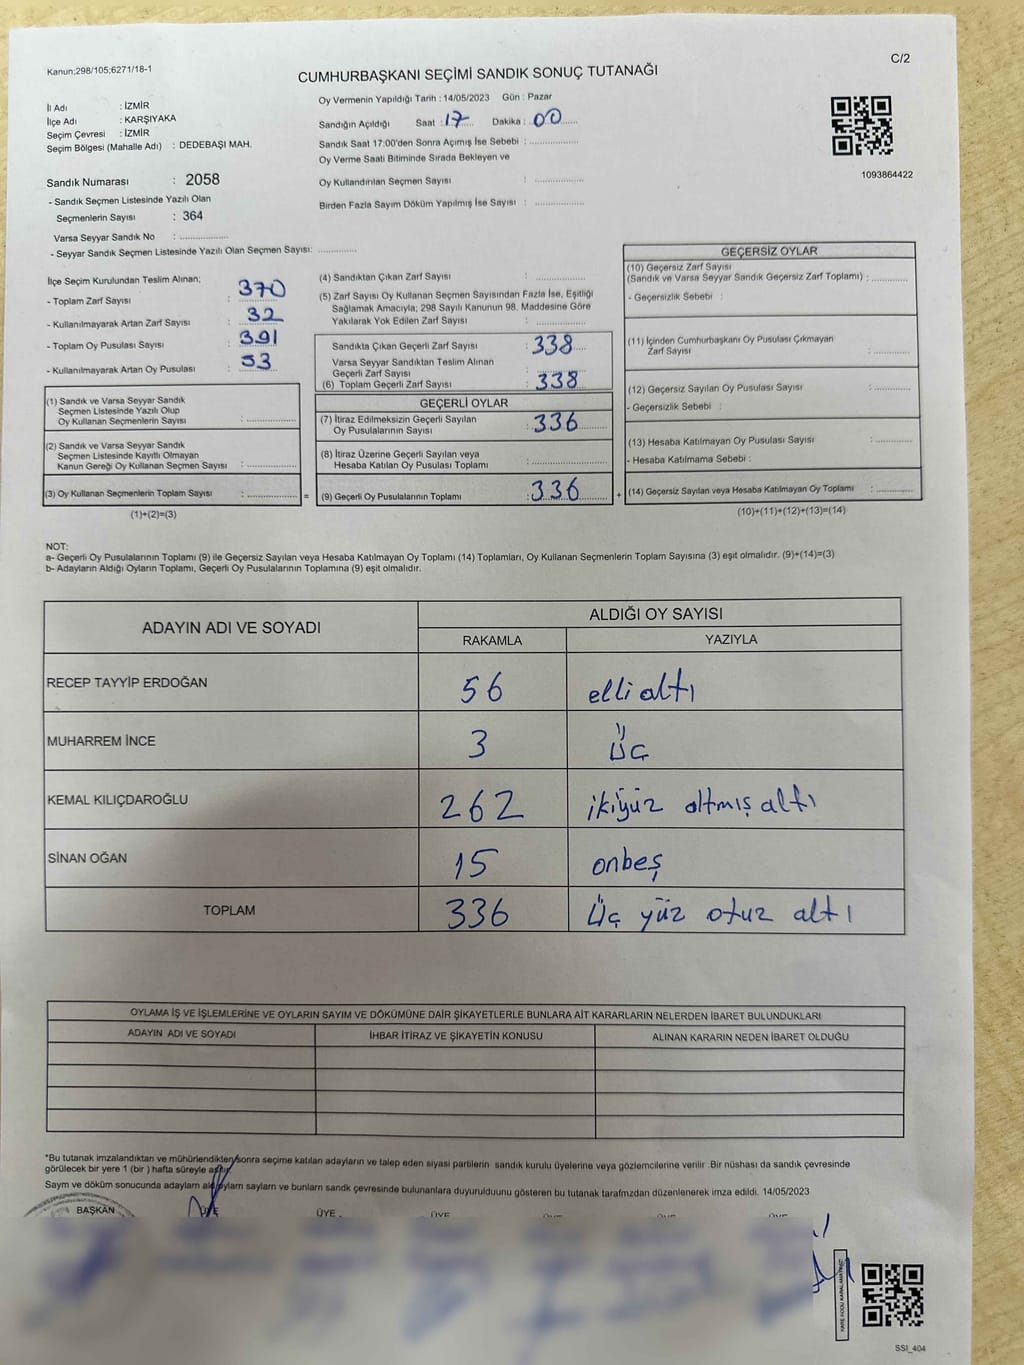 Kanun;298/105;6271/18-1
C/2
CUMHURBAŞKANI SEÇİMİ SANDIK SONUÇ TUTANAĞI
İl Adı : İZMİR
İlçe Adı : KARŞIYAKA
Seçim Çevresi : İZMİR
Seçim Bölgesi (Mahalle Adı) : DEDEBAŞI MAH.
Sandık Numarası : 2058
- Sandık Seçmen Listesinde Yazılı Olan
Seçmenlerin Sayısı : 364
Varsa Seyyar Sandık No : ..............
- Seyyar Sandık Seçmen Listesinde Yazılı Olan Seçmen Sayısı: ............
Oy Vermenin Yapıldığı Tarih : 14/05/2023 Gün : Pazar
Sandığın Açıldığı Saat : 17 Dakika : 00
Sandık Saat 17:00'den Sonra Açımış İse Sebebi : ................
Oy Verme Saati Bitiminde Sırada Bekleyen ve
Oy Kullandırılan Seçmen Sayısı : ................
Birden Fazla Sayım Döküm Yapılmış İse Sayısı : ................
1093864422
İlçe Seçim Kurulundan Teslim Alınan;
- Toplam Zarf Sayısı : 370
- Kullanılmayarak Artan Zarf Sayısı : 32
- Toplam Oy Pusulası Sayısı : 391
- Kullanılmayarak Artan Oy Pusulası : 53
(1) Sandık ve Varsa Seyyar Sandık
Seçmen Listesinde Yazılı Olup
Oy Kullanan Seçmenlerin Sayısı : ................
(2) Sandık ve Varsa Seyyar Sandık
Seçmen Listesinde Kayıtlı Olmayan
Kanun Gereği Oy Kullanan Seçmen Sayısı : ................
(3) Oy Kullanan Seçmenlerin Toplam Sayısı : ................
(1)+(2)=(3)
=
(4) Sandıktan Çıkan Zarf Sayısı : ................
(5) Zarf Sayısı Oy Kullanan Seçmen Sayısından Fazla İse, Eşitliği
Sağlamak Amacıyla; 298 Sayılı Kanunun 98. Maddesine Göre
Yakılarak Yok Edilen Zarf Sayısı : ................
Sandıkta Çıkan Geçerli Zarf Sayısı : 338
Varsa Seyyar Sandıktan Teslim Alınan
Geçerli Zarf Sayısı
(6) Toplam Geçerli Zarf Sayısı : 338
GEÇERLİ OYLAR
(7) İtiraz Edilmeksizin Geçerli Sayılan
Oy Pusulalarının Sayısı : 336
(8) İtiraz Üzerine Geçerli Sayılan veya
Hesaba Katılan Oy Pusulası Toplamı : ................
(9) Geçerli Oy Pusulalarının Toplamı : 336
+
GEÇERSİZ OYLAR
(10) Geçersiz Zarf Sayısı
(Sandık ve Varsa Seyyar Sandık Geçersiz Zarf Toplamı) : ............
- Geçersizlik Sebebi :
(11) İçinden Cumhurbaşkanı Oy Pusulası Çıkmayan
Zarf Sayısı : ............
(12) Geçersiz Sayılan Oy Pusulası Sayısı : ............
- Geçersizlik Sebebi :
(13) Hesaba Katılmayan Oy Pusulası Sayısı : ............
- Hesaba Katılmama Sebebi :
(14) Geçersiz Sayılan veya Hesaba Katılmayan Oy Toplamı : ............
(10)+(11)+(12)+(13)=(14)
NOT:
a- Geçerli Oy Pusulalarının Toplamı (9) ile Geçersiz Sayılan veya Hesaba Katılmayan Oy Toplamı (14) Toplamları, Oy Kullanan Seçmenlerin Toplam Sayısına (3) eşit olmalıdır. (9)+(14)=(3)
b- Adayların Aldığı Oyların Toplamı, Geçerli Oy Pusulalarının Toplamına (9) eşit olmalıdır.
ADAYIN ADI VE SOYADI
ALDIĞI OY SAYISI
RAKAMLA YAZIYLA
RECEP TAYYİP ERDOĞAN 56 elli altı
MUHARREM İNCE 3 üç
KEMAL KILIÇDAROĞLU 262 ikiyüz altmış altı
SİNAN OĞAN 15 onbeş
TOPLAM 336 üç yüz otuz altı
OYLAMA İŞ VE İŞLEMLERİNE VE OYLARIN SAYIM VE DÖKÜMÜNE DAİR ŞİKAYETLERLE BUNLARA AİT KARARLARIN NELERDEN İBARET BULUNDUKLARI
ADAYIN ADI VE SOYADI İHBAR İTİRAZ VE ŞİKAYETİN KONUSU ALINAN KARARIN NEDEN İBARET OLDUĞU
*Bu tutanak imzalandıktan ve mühürlendikten sonra seçime katılan adayların ve talep eden siyasi partilerin sandık kurulu üyelerine veya gözlemcilerine verilir .Bir nüshası da sandık çevresinde
görülecek bir yere 1 (bir ) hafta süreyle asılır.
Sayım ve döküm sonucunda adayların aldığı oyların sayıları ve bunların sandık çevresinde bulunanlara duyurulduunu gösteren bu tutanak tarafımzdan düzenlenerek imza edildi. 14/05/2023
BAŞKAN ÜYE ÜYE ÜYE
SSI_404